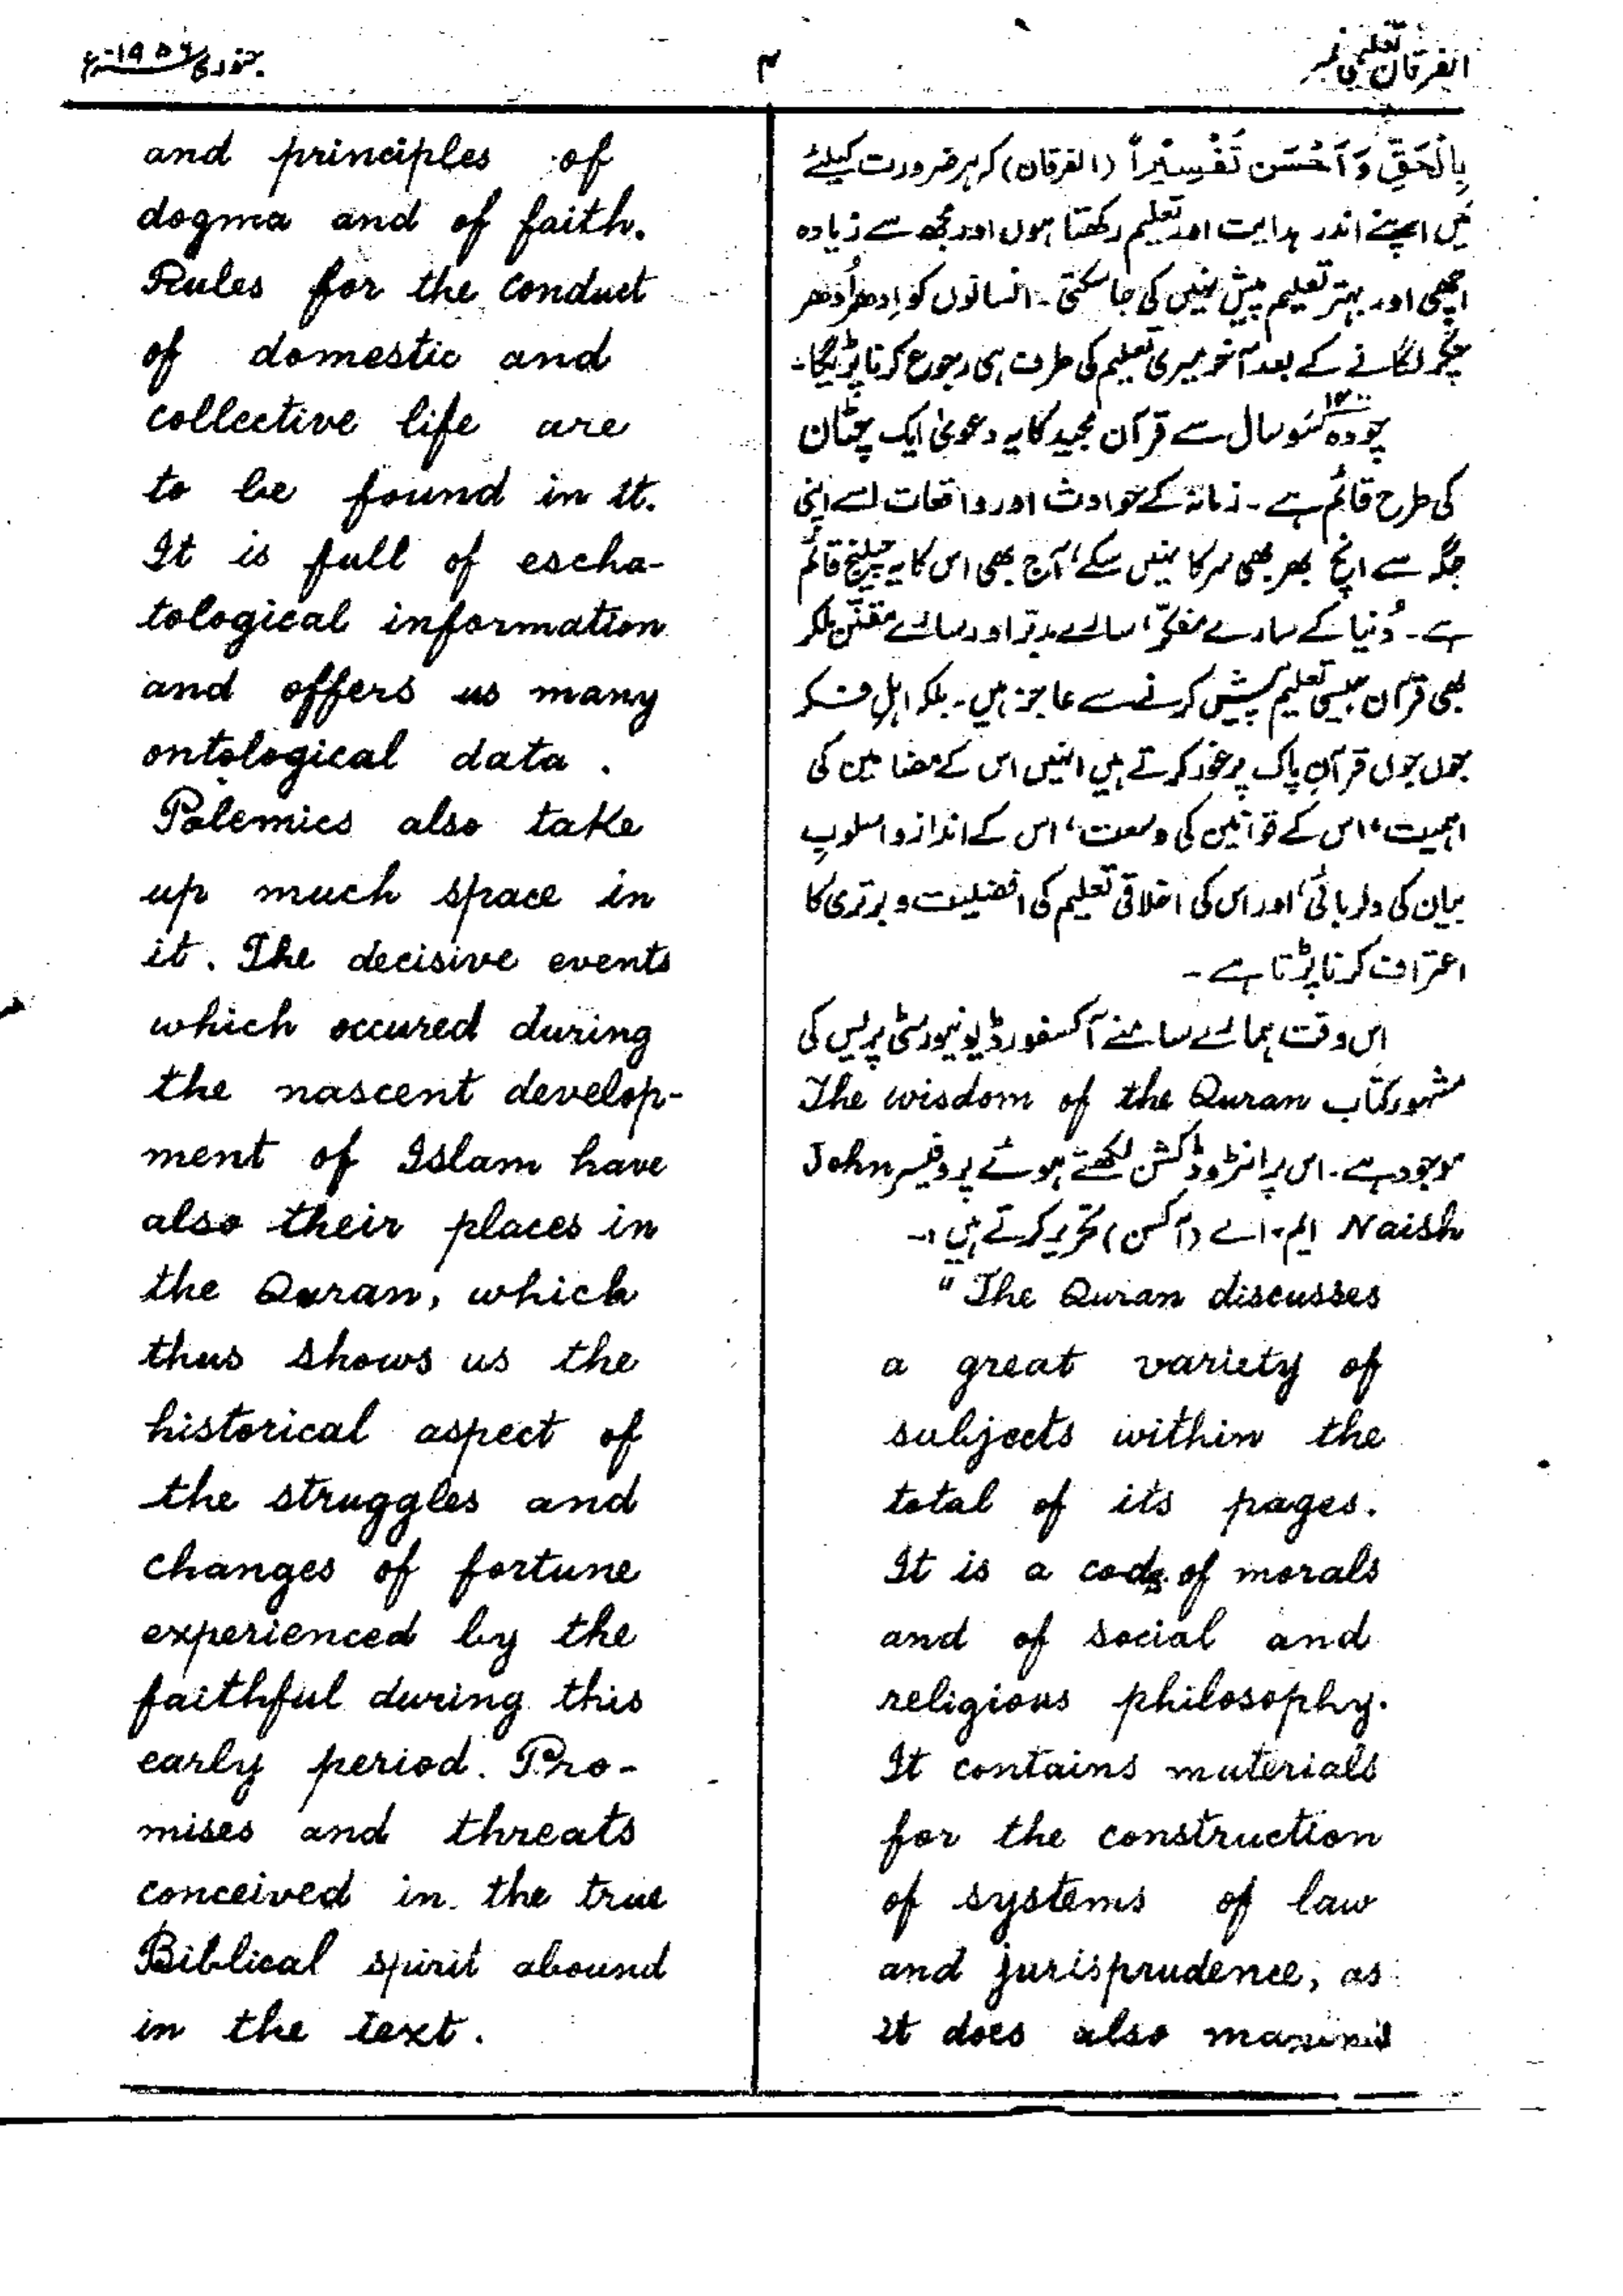 الفرقان تعلیمی نمبر
۳
جنوری ۱۹۵۶ء
بِالْحَقِّ وَاَحْسَنَ تَفْسِیْراً (الفرقان) کہ ہر ضرورت کیلئے
میں اپنے اندر ہدایت اور تعلیم رکھتا ہوں اور مجھ سے زیادہ
اچھی اور بہتر تعلیم پیش نہیں کی جا سکتی۔ انسانوں کو اِدھر اُدھر
چکر لگانے کے بعد آخر میری تعلیم کی طرف ہی رجوع کرنا پڑیگا۔
چودہ سَو ۱۴۰۰ سال سے قرآن مجید کا یہ دعویٰ ایک چٹان
کی طرح قائم ہے۔ زمانہ کے حوادث اور واقعات اسے اپنی
جگہ سے انچ بھر بھی سرکا نہیں سکے، آج بھی اس کا یہ چیلنج قائم
ہے۔ دُنیا کے سارے مفکّر، سارے مدبّر اور سارے مقنّن ملکر
بھی قرآن جیسی تعلیم پیش کرنے سے عاجز ہیں۔ بلکہ اہلِ فکر
جوں جوں قرآنِ پاک پر غور کرتے ہیں انہیں اس کے مضامین کی
اہمیت، اس کے قوانین کی وسعت، اس کے انداز و اسلوبِ
بیان کی دلربائی، اور اس کی اخلاقی تعلیم کی افضلیت و برتری کا
اعتراف کرنا پڑتا ہے۔
اس وقت ہمارے سامنے آکسفورڈ یونیورسٹی پریس کی
مشہور کتاب The wisdom of the Quran
موجود ہے۔ اس پر انٹروڈکشن لکھتے ہوئے پروفیسر John
Naish ایم۔اے (آکسن) تحریر کرتے ہیں :۔
"The Quran discusses
a great variety of
subjects within the
total of its pages.
It is a code of morals
and of social and
religious philosophy.
It contains materials
for the construction
of systems of law
and jurisprudence, as
it does also
and principles of
dogma and of faith.
Rules for the conduct
of domestic and
collective life are
to be found in it.
It is full of escha-
tological information
and offers us many
ontological data.
Polemics also take
up much space in
it. The decisive events
which occured during
the nascent develop-
ment of Islam have
also their places in
the Quran, which
thus shows us the
historical aspect of
the struggles and
changes of fortune
experienced by the
faithful during this
early period. Pro-
mises and threats
conceived in the true
Biblical spirit abound
in the text.